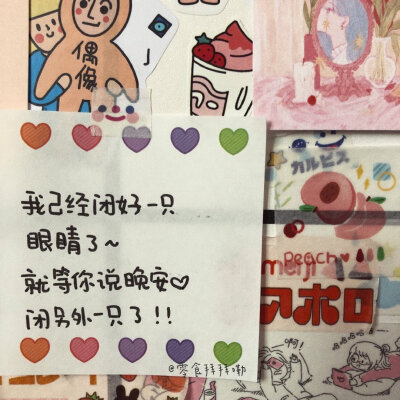 偶像
我已经闭好一只
眼睛了~
就等你说晚安♡
闭另外一只了!!
@零食拜拜嘞
カルピス
Peach
meiji
アポロ
啊!